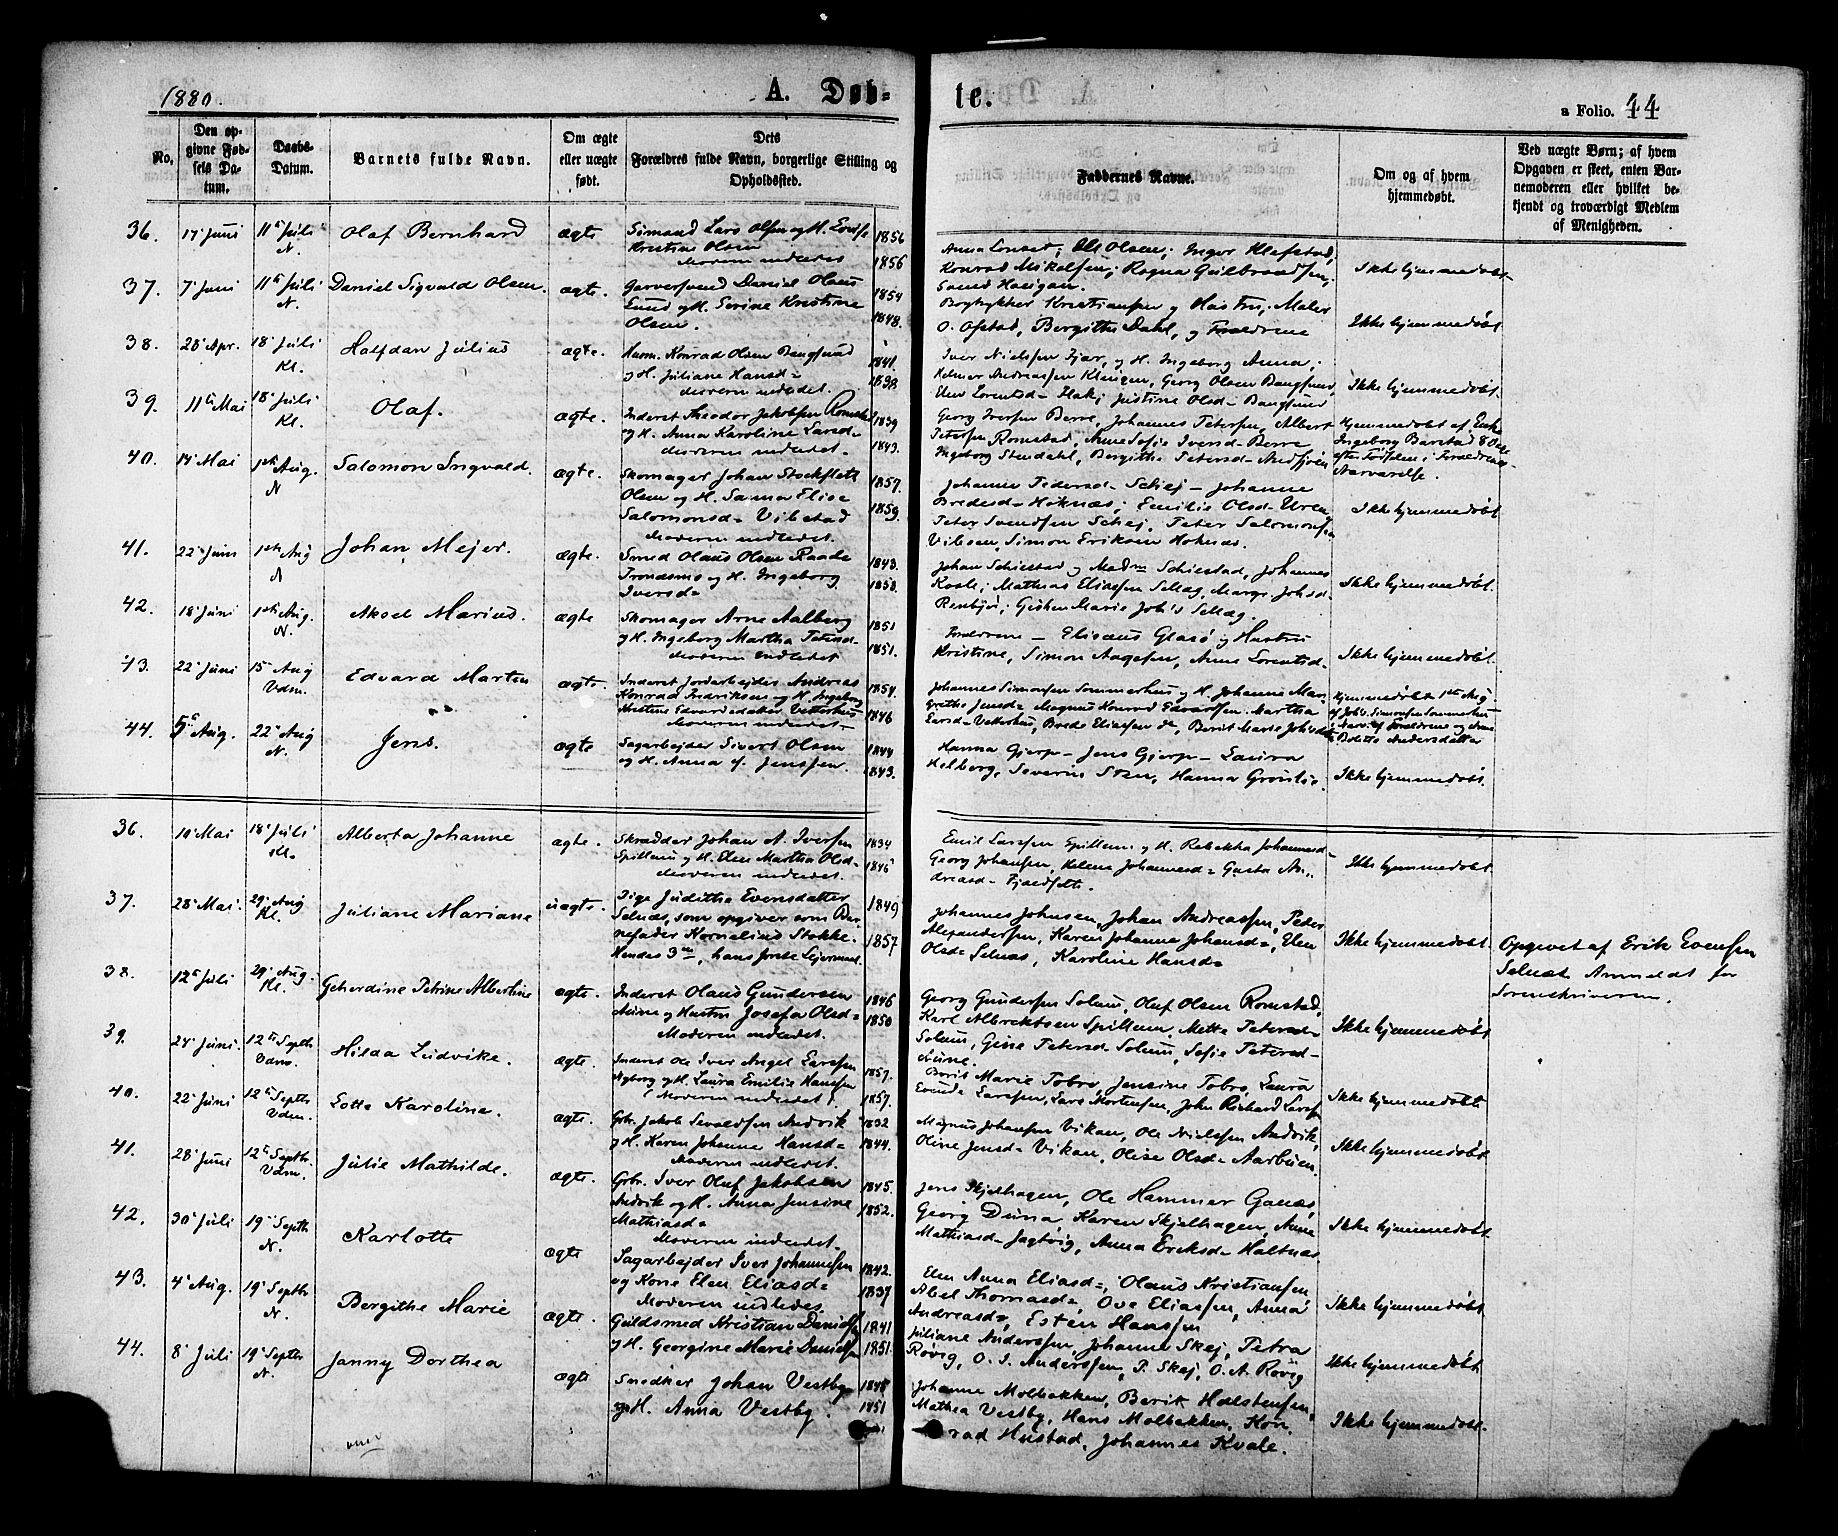 1880.
A. Døb-
te.
a Folio. 44
No.
Den op-
givne Fød-
sels Da-
tum.
Daabs-
Datum.
Barnets fulde Navn.
Om ægte
eller uægte
født.
Dets
Forældres fulde Navn, borgerlige Stilling og
Opholdssted.
Faddernes Navne.
Om og af hvem
hjemmedøbt.
Ved uægte Børn; af hvem
Opgaven er skeet, enten Bar-
nemoderen eller hvilket be-
kjendt og troværdigt Medlem
af Menigheden.
36. 17 Juni 11te Juli N. Olaf Bernhard ægte
Simand Lars Olsen og H. Lovise 1856
Kristine Olsen
Moderen indledet 1856
Konrad Mikalsen; Ragna Guldbrandsen,
Ikke hjemmedøbt
37. 7 Juni 11te Juli N. Daniel Sigvald Olsen. ægte.
Garversvend Daniel Olaus 1854
Lund og H. Serine Kristine 1848.
Olsen.
O. Ofstad, Bergitte Dahl, og Forældrene
Ikke hjemmedøbt
38. 28 Apr. 18 Juli Kl. Halfdan Julius ægte.
Husm. Konrad Olsen Bangsund 1841.
og H. Juliane Hansd=
Moderen indledet.
Iver Nielsen Fjær, og H. Ingeborg Anna;
Helmer Andreassen Klingen, Georg Olsen Bangsund,
Ikke hjemmedøbt.
39. 11te Mai 18 Juli Kl. Olaf. ægte.
Inderst Theodor Jakobsen Romstad 1839
og H. Anna Karoline Larsd= 1843.
Moderen indledet.
Georg Iversen Berre, Johannes Petersen, Albert
Petersen Romstad, Anne Sofie Iversd= Berre
Hjemmedøbt af Enke
Ingeborg Barstad 8 Dage
efter Fødselen i Forældrenes
Nærværelse.
40. 14 Mai 1ste Aug. N Salomon Ingvald. ægte.
Skomager Johan Stockflett 1857.
Olsen og H. Sanna Elise 1859.
Salomonsd= Vibstad
Moderen indledet.
Johanne Pedersd= Schej - Johanne
Bredesd= Høknæs; Emilie Olsd=
Peter Svendsen Schej, Peter Salomonsen
Vibsen, Simon Eriksen Høknæs.
Ikke hjemmedøbt
41. 22 Juni 1ste Aug N Johan Mejer. ægte.
Smed Olaus Olsen Raade 1843.
Trondsmo og H. Ingeborg 1858.
Iversd=
Johan Schiestad og Mad= Schiestad, Johannes
Ikke hjemmedøbt.
42. 18 Juni 1ste Aug. N. Aksel Marius. ægte
Skomager Arne Aalberg 1851
og H. Ingeborg Martha Petersd= 1851.
Moderen indledet
Forældrene - Elisæus Glasø og Hustru
Kristine, Simon Aagesen, Anne Lorentsd=
Ikke hjemmedøbt.
43. 22 Juni 15 Aug Vdm. Edvard Martin ægte.
Inderst Jordarbejder Andreas 1854.
Konrad Fredriksen og H. Ingeborg
Kristine Edvardsdatter Vetterhus 1846
Moderen indledet
Johannes Simonsen Sommerhus og H. Johanna Mar-
grethe Jensd= Magnus Konrad Edvardsen. Martha
Hjemmedøbt 1ste Aug
af Joh. Simonsen Sommerhus
44. 5te Aug. 22 Aug N. Jens. ægte
Sagarbejder Sivert Olsen 1844
og H. Anna f. Jenssen. 1843.
Hanna Gjerp - Jens Gjerp - Laura
Helberg, Severin Steen, Hanna
Ikke hjemmedøbt.
36. 19 Mai 18 Juli Kl. Alberta Johanne ægte.
Skrædder Johan A. Iversen 1834
Spillum og H. Elen Martha Olsd= 1845
Moderen indledet.
Emil Larssen Spillum og H. Rebekka Johannesd=
Georg Johansen, Helena Johannesd= Gusta An-
dreasd=
Ikke hjemmedøbt
37. 28 Mai. 29 Aug Kl. Juliane Mariane uægte.
Pige Juditha Evensdatter 1849
Selnæs, som opgiver som Bar-
nefader Kornelius Stokke. 1857
Hendes 3die, hans første Lejermaal
Johannes Johnsen, Johan Andreassen, Peder
Alexandersen, Karen Johanna Johansd=, Elen
Olsd= Selnæs, Karoline Hansd=
Ikke hjemmedøbt.
Opgivet af Erik Evensen
Selnæs. Anmeldt for
Sorenskriveren.
38. 12te Juli 29 Aug. Kl. Geherdine Petrine Albertine ægte.
Inderst Olaus Gundersen 1846
Aune og Hustru Josefa Olsd= 1850
Moderen indledet.
Georg Gundersen Solum, Oluf Olsen Romstad,
Karl Albrektsen Spillum, Mette Petersd=
Solum, Gine Petersd= Solum, Sofie Petersd=
Aune.
Ikke hjemmedøbt
39. 24 Juni. 12te Septb. Vdm. Hilda Ludvike. ægte.
Inderst Ole Iver Angel Larssen 1857.
Nyborg og H. Laura Emilie Hanssen
(Moderen indledet). 1857.
Berit Marie Tobro, Jensine Tobro, Laura
Evinda Larssen, Lars Mortensen, John Richard Larssen
Ikke hjemmedøbt
40. 22 Juni 12te Septb. Vdm. Lotte Karoline. ægte.
Gbr. Jakob Sevaldsen Andvik 1832
og H. Karen Johanne Hansd= 1844.
Moderen indledet.
Magnus Johansen Vikan, Ole Nielssen Andvik,
Oline Jensd= Vikan, Olise Olsd= Aarbuen.
Ikke hjemmedøbt
41. 28 Juni 12te Septb. Vdm. Julie Mathilde. ægte.
Gbr. Iver Oluf Jakobsen 1845.
Andvik og H. Anna Jensine 1852.
Mathiasd=
Moderen indledet.
Jens Skjelhagen, Ole Hammer Ganæs,
Georg Duna, Karen Skjelhagen, Anne
Mathiasd= Jagtvig, Anna Eriksd= Haltnæs
Ikke hjemmedøbt
42. 30 Juli 19 Septb. N. Karlotte ægte
Sagarbejder Iver Johannesen 1842.
og Kone Elen Eliasd= 1837
Moderen indledes
Elen Anna Eliasd=, Olaus Kristiansen
Abel Thomasd=, Ove Eliassen, Anna
Andreasd=, Esten Hanssen
Ikke hjemmedøbt
43. 4 Aug. 19 Septb. N. Bergithe Marie ægte.
Guldsmed Kristian Danielsen 1841
og H. Georgine Marie Danielsen 1851.
Juliane Anderssen, Johanne Skej, Petra
Røvig, O. S. Anderssen, P. Skej, O. A. Røvig
Ikke hjemmedøbt
44. 8 Juli 19 Septb. N. Janny Dorthea ægte
Snedker Johan Vestby 1848
og H. Anna Vestby. 1851
Johanne Molbækken, Berit Halstensen,
Mathea Vestby, Hans Molbækken, Kon-
rad Hustad, Johannes Kvale.
Ikke hjemmedøbt.